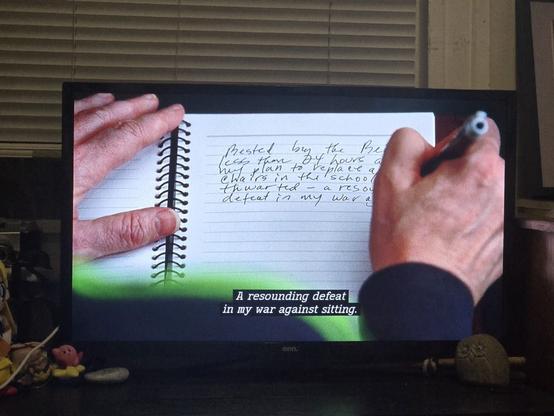 Bested by the Be
less than 24 hours a
my plan to replace a
chairs in the school
thwarted – a resou
defeat in my war ag
A resounding defeat
in my war against sitting.
onn.